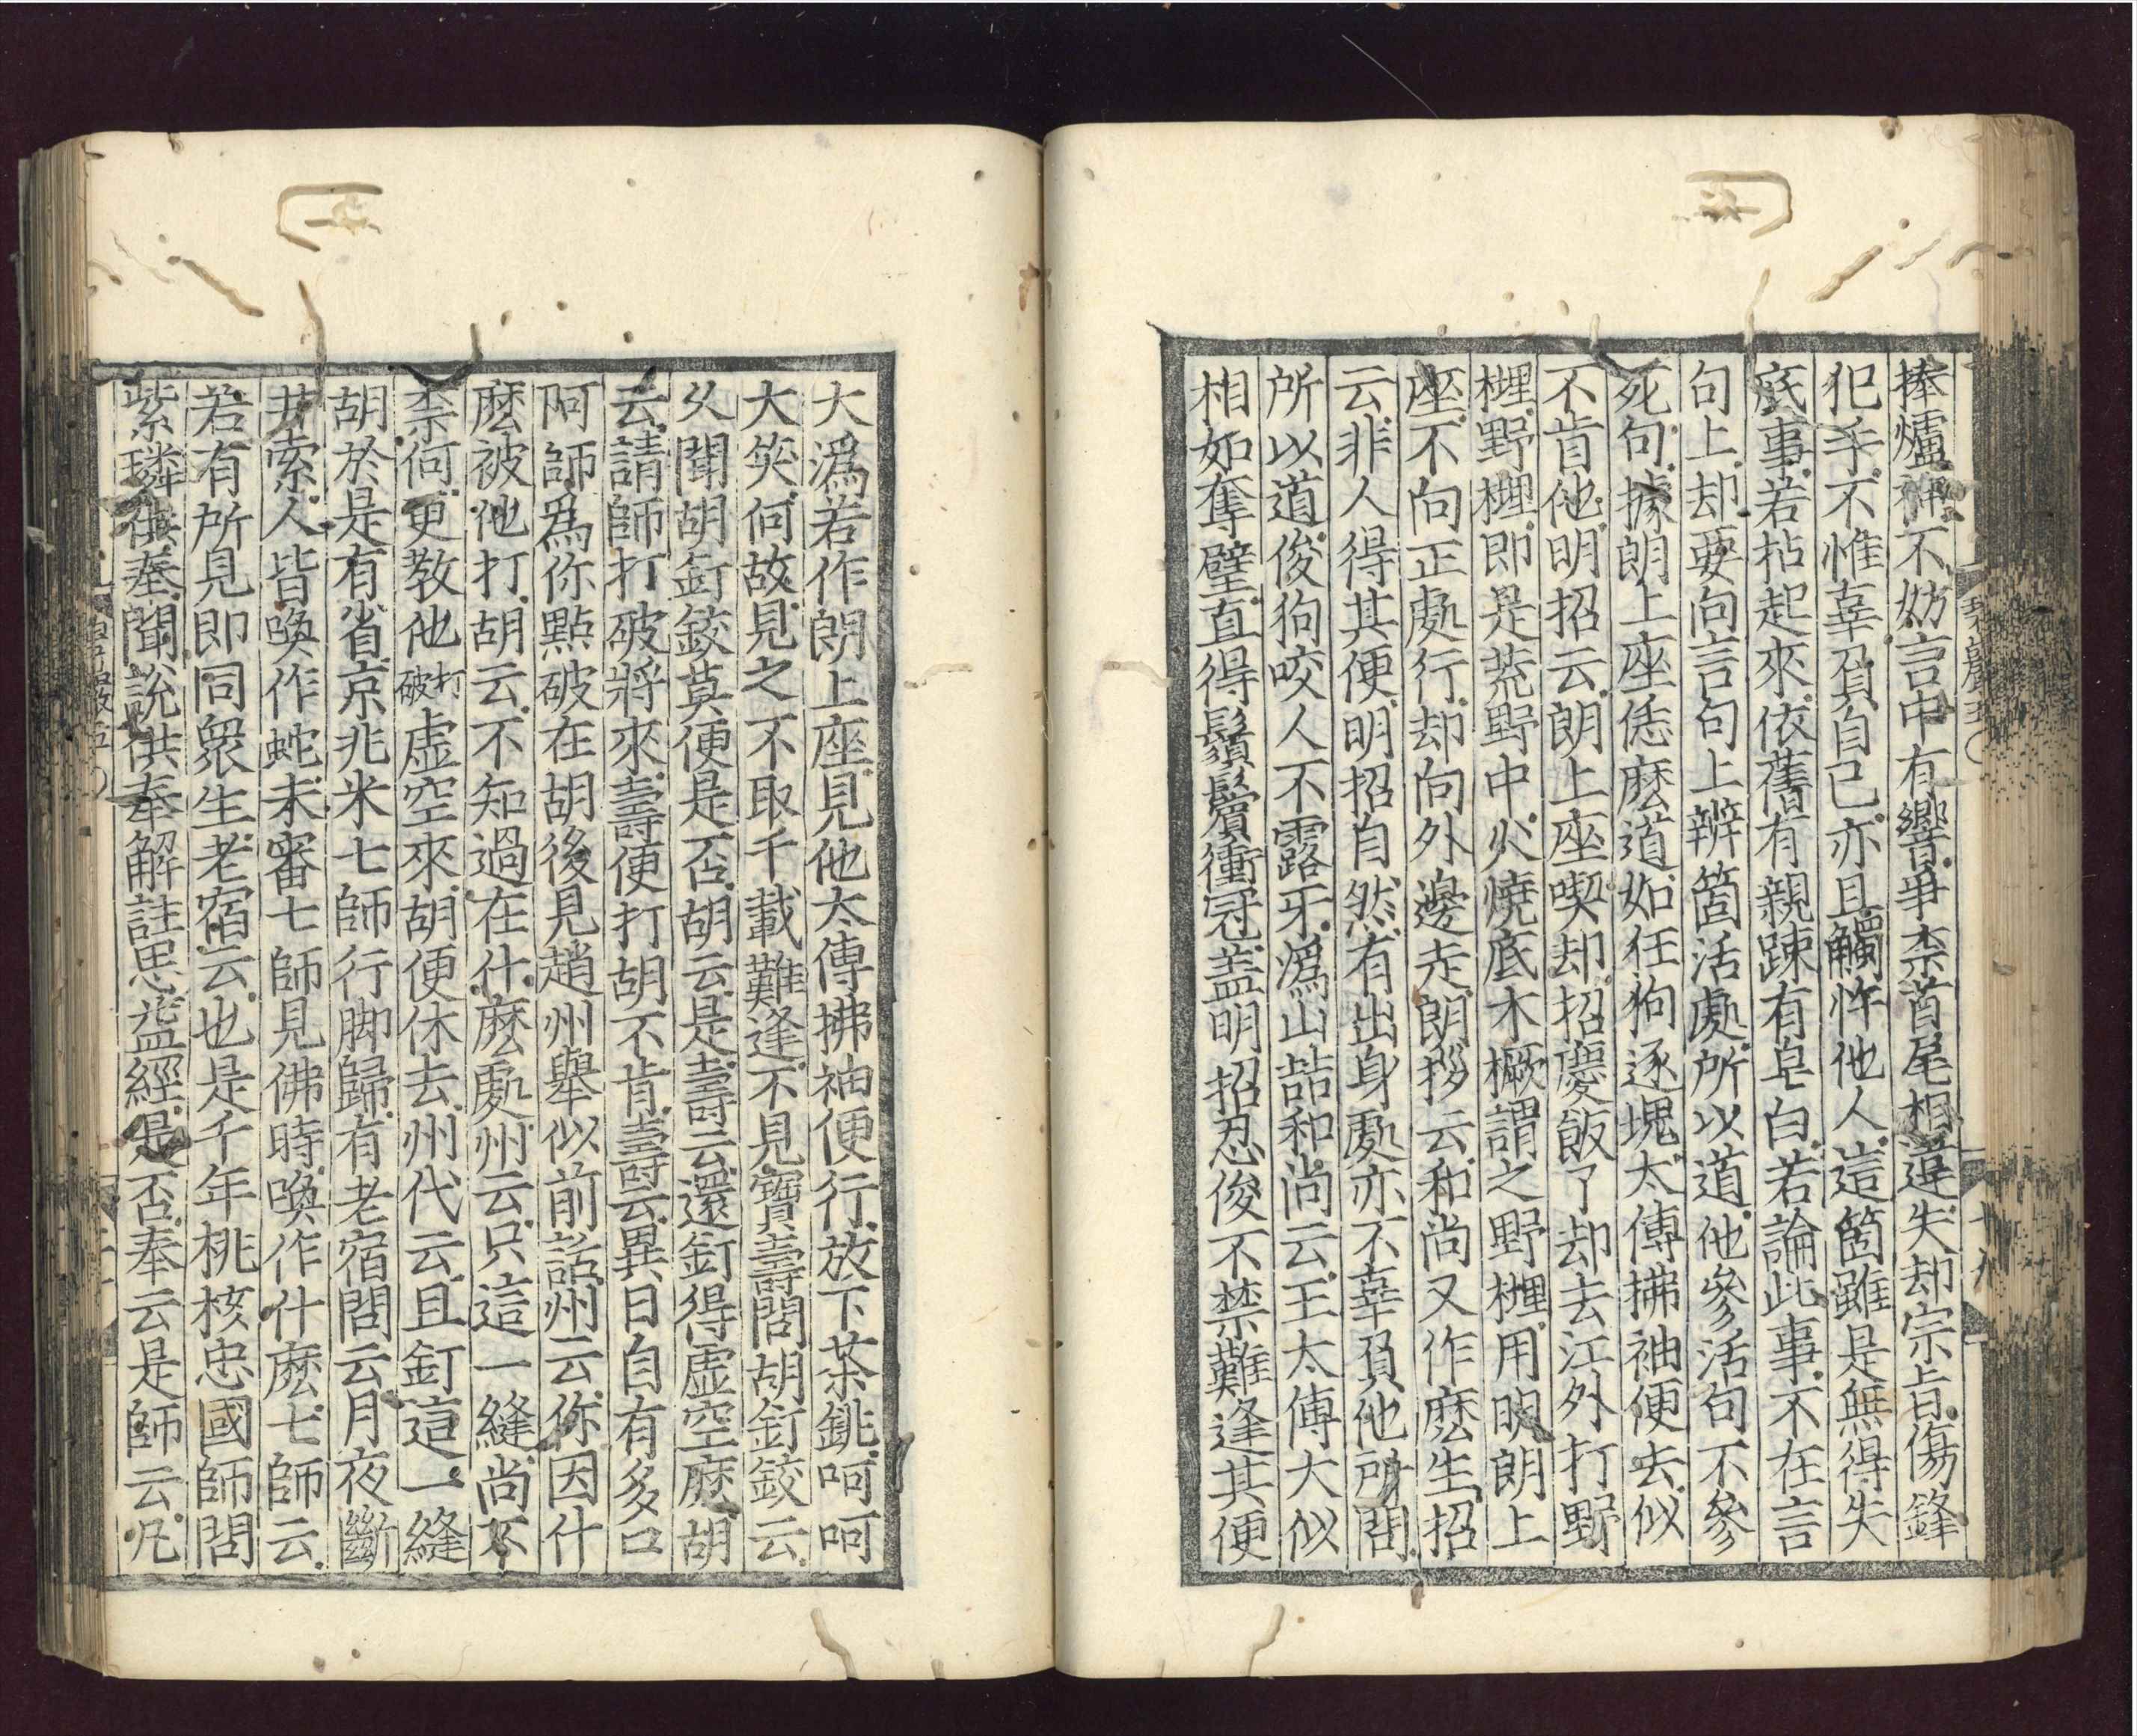 捧爐神不妨言中有響爭柰首尾相違失却宗旨傷鋒
犯手不惟辜負自己亦且觸忤他人這箇雖是無得失
底事若拈起來依舊有親疎有皂白若論此事不在言
句上却要向言句上辨箇活處所以道他參活句不參
死句據朗上座恁麽道如狂狗逐塊太傅拂袖便去似
不肯他明招云朗上座喫却招慶飯了却去江外打野
榸野榸即是荒野中火燒底木橛謂之野榸用明朗上
座不向正處行却向外邊走朗拶云和尚又作麽生招
云非人得其便明招自然有出身處亦不辜負他所問
所以道俊狗咬人不露牙潙山喆和尚云王太傅大似
相如奪璧直得鬚鬢衝冠盖明招忍俊不禁難逢其便
大潙若作朗上座見他太傅拂袖便行放下茶銚呵呵
大笑何故見之不取千載難逢不見寶壽問胡釘鉸云
久聞胡釘鉸莫便是否胡云是壽云還釘得虛空麽胡
云請師打破將來壽便打胡不肯壽云異日自有多口
阿師爲你點破在胡後見趙州舉似前話州云你因什
麽被他打胡云不知過在什麽處州云只這一縫尚不
柰何更教他打破虛空來胡便休去州代云且釘這一縫
胡於是有省京兆米七師行脚歸有老宿問云月夜斷
井索人皆喚作蛇未審七師見佛時喚作什麽七師云
若有所見即同衆生老宿云也是千年桃核忠國師問
紫璘供奉聞說供奉解註思益經是否奉云是師云凡